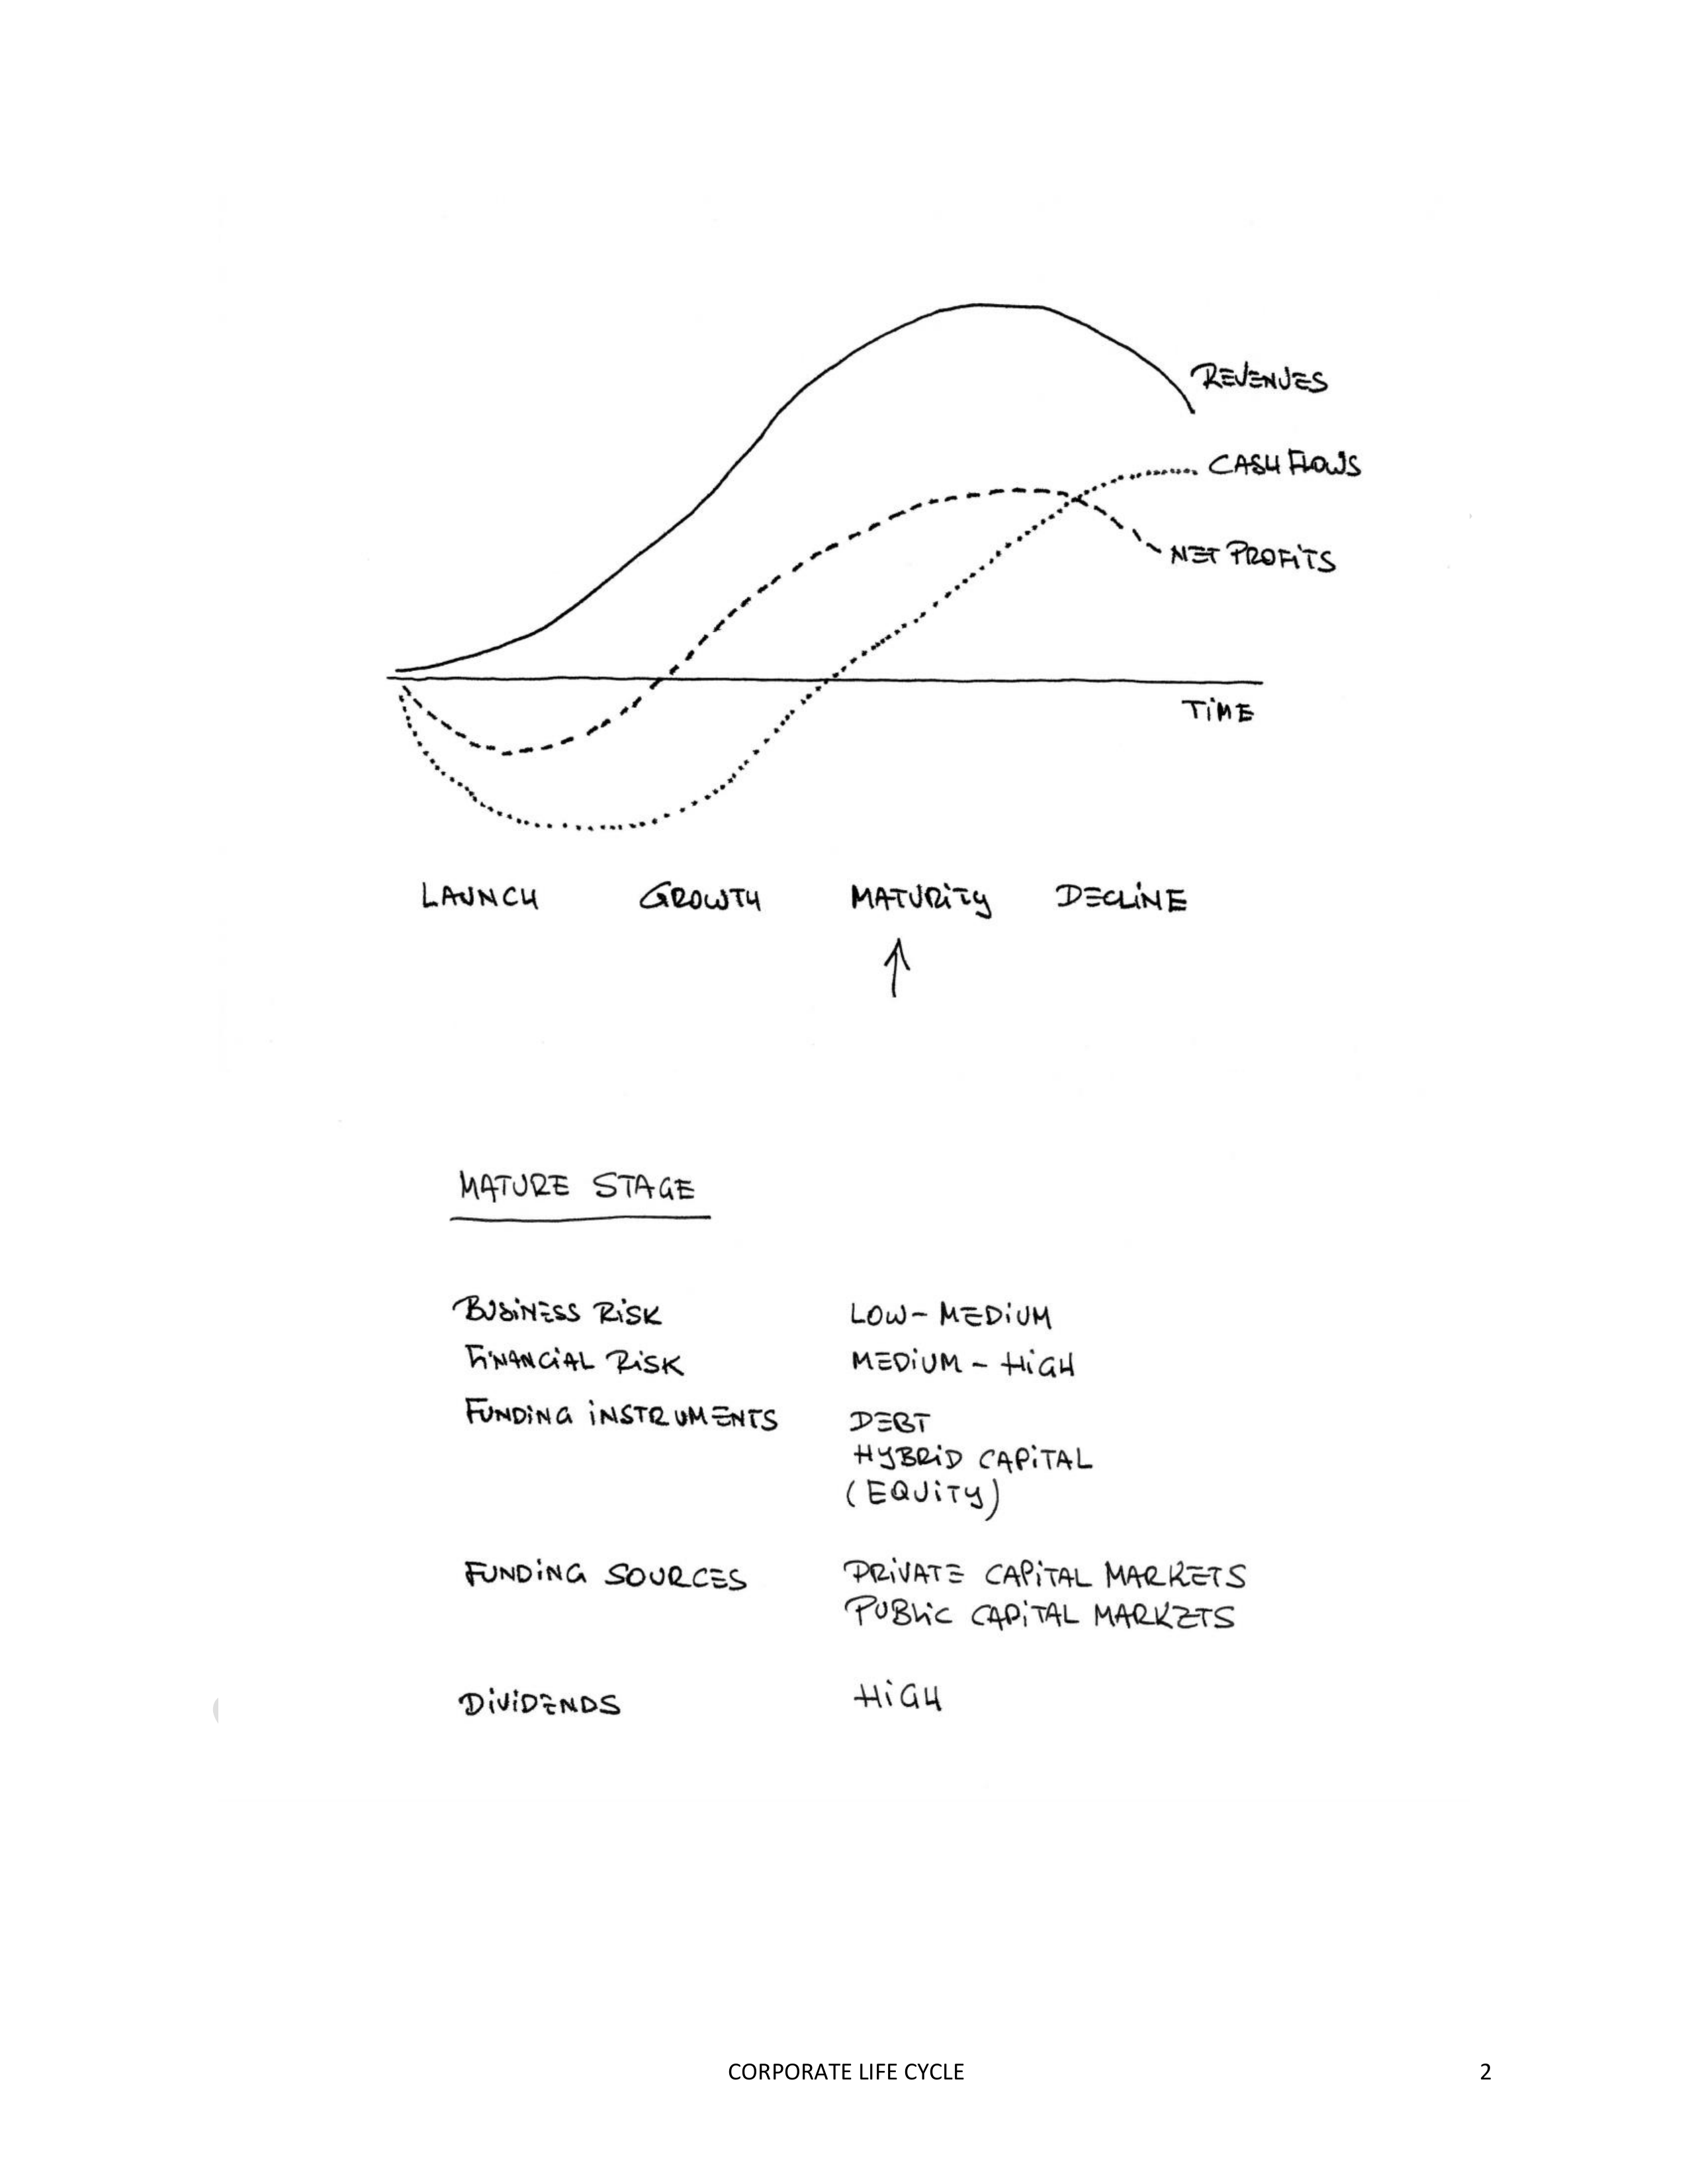 REVENUES
CASH FLOWS
NET PROFiTS
TiME
LAUNCH GROWTH MATURiTy DECLiNE
MATURE STAGE
BUSiNESS RiSK LOW - MEDiUM
FiNANCiAL RiSK MEDiUM - HiGH
FUNDiNG iNSTRUMENTS DEBT
HyBRiD CAPiTAL
(EQUiTy)
FUNDiNG SOURCES PRiVATE CAPiTAL MARKETS
PUBLiC CAPiTAL MARKETS
DiViDENDS HiGH
CORPORATE LIFE CYCLE 2